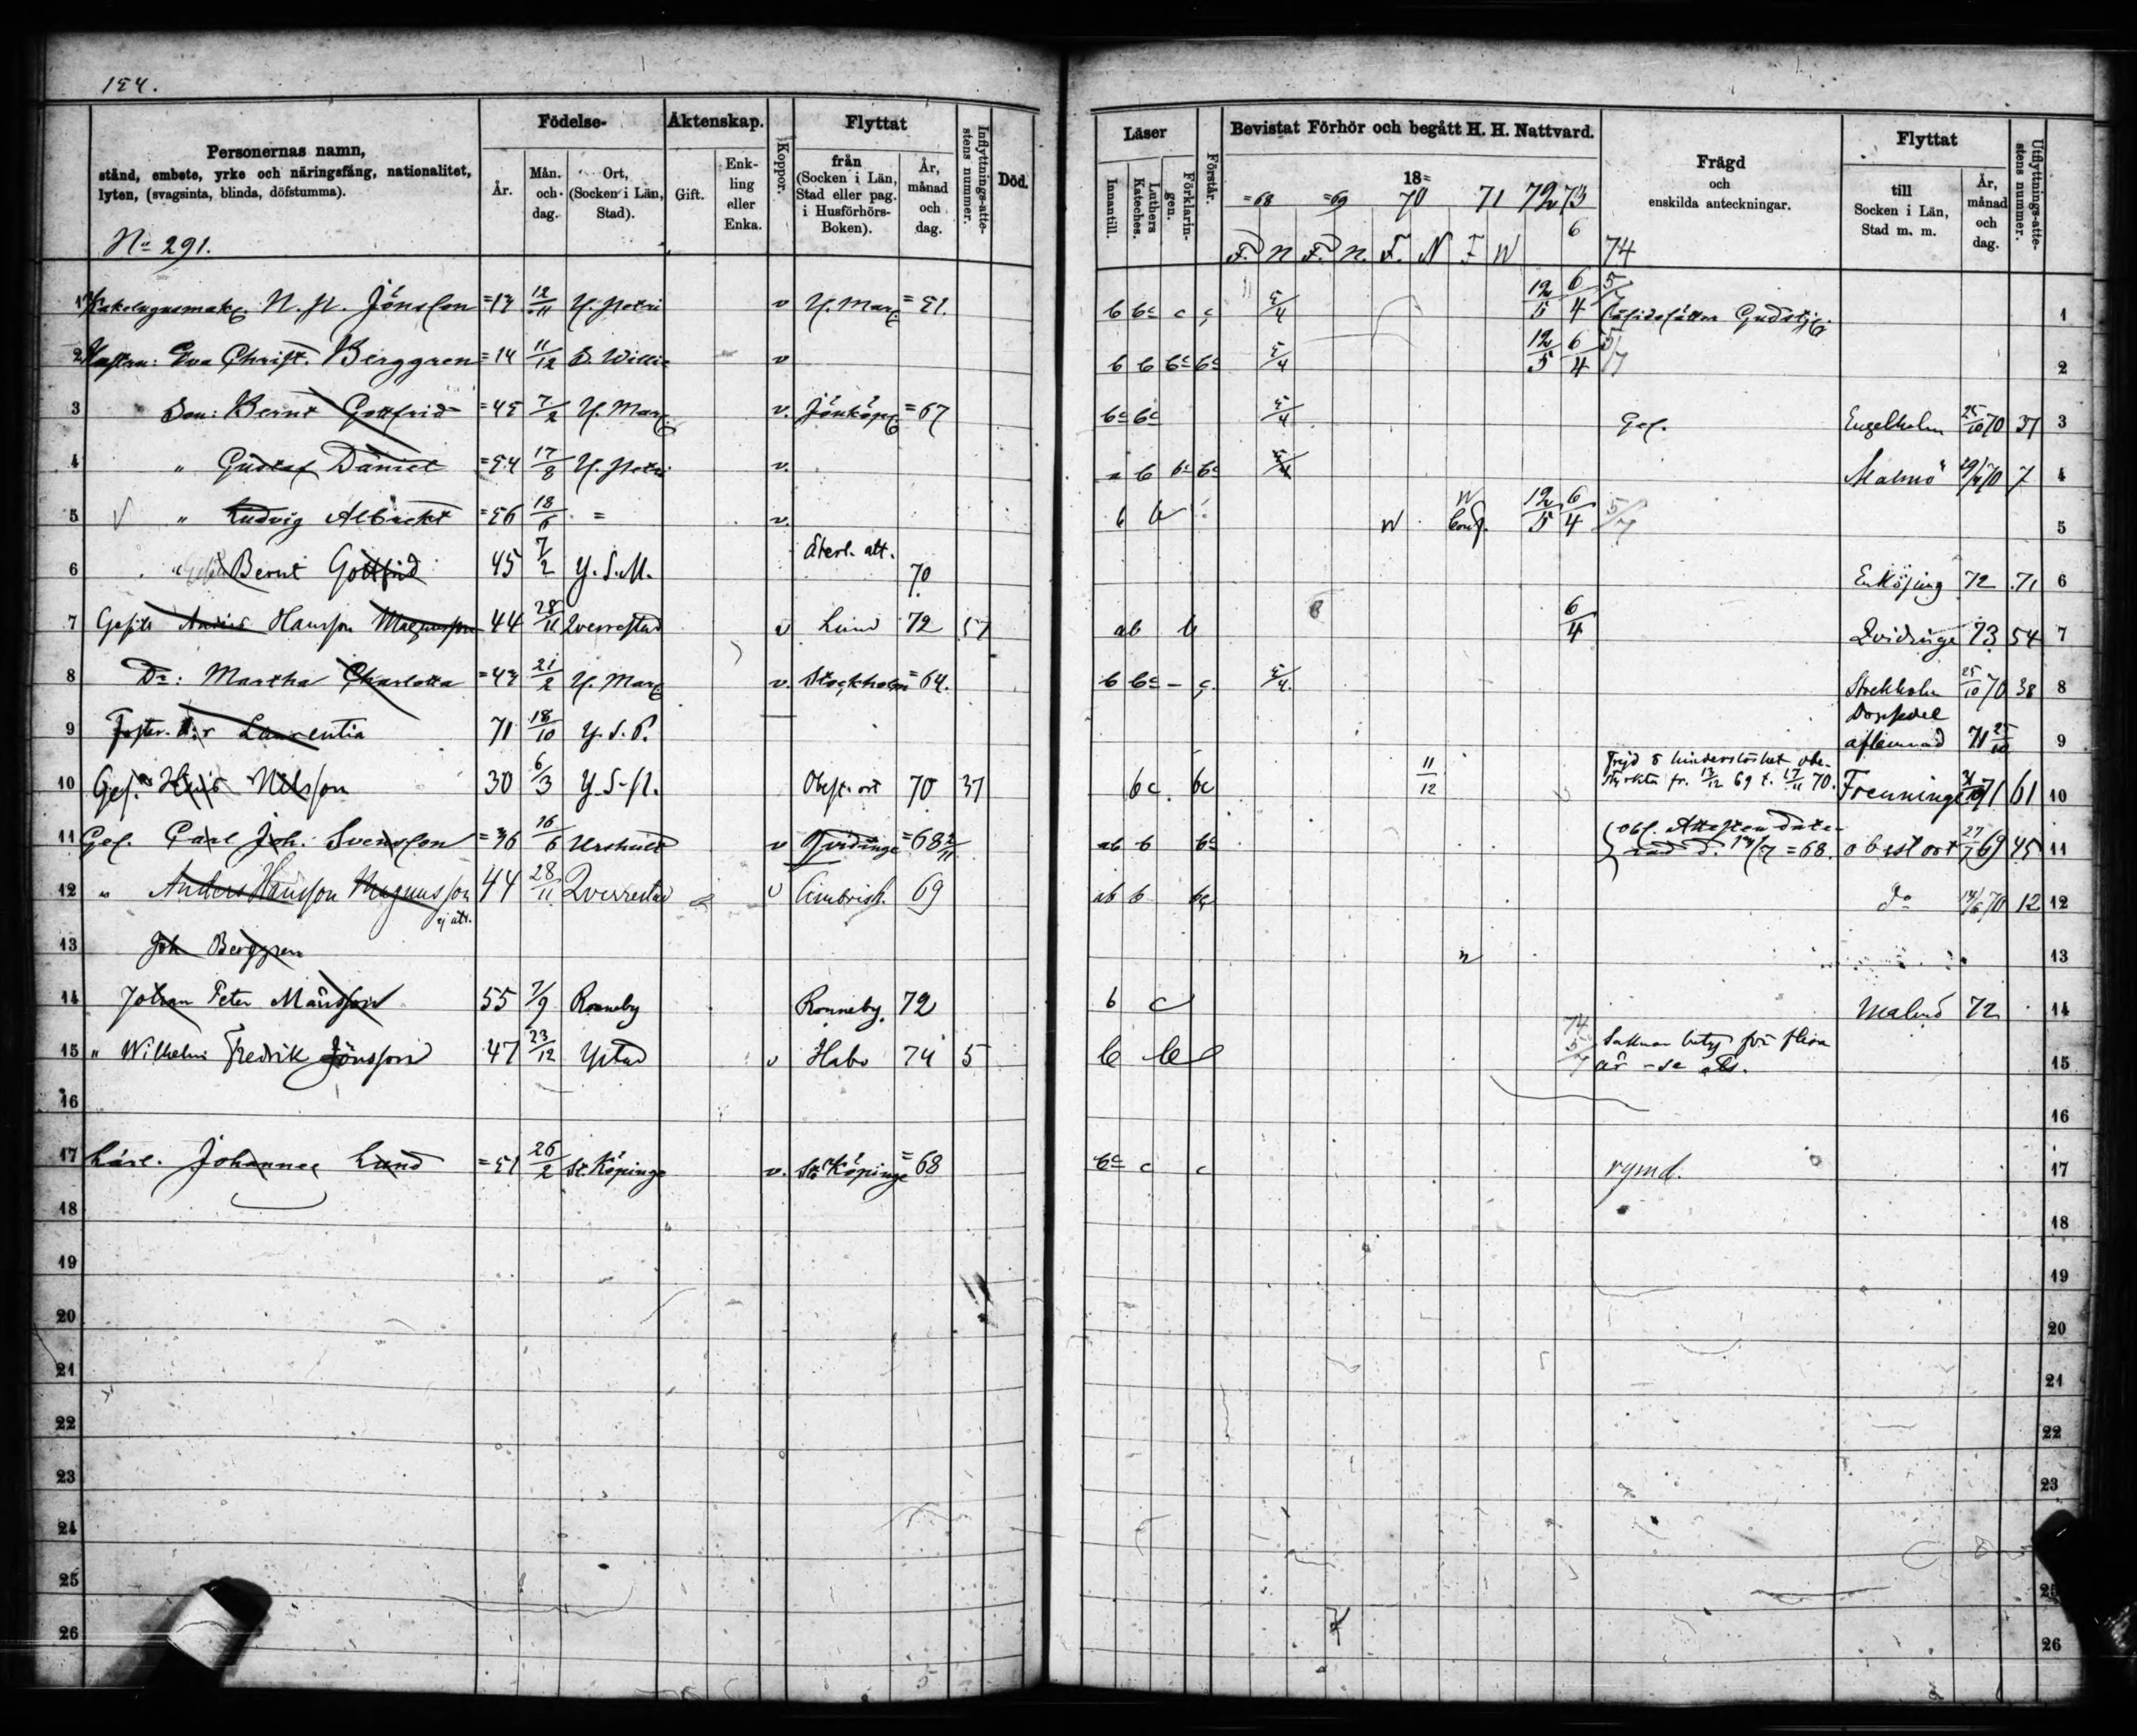 154.
Personernas namn,
stånd, embete, yrke och näringsfång, nationalitet,
lyten, (svagsinta, blinda, döfstumma).
No 291.
Födelse-
År.
Mån. och dag.
Ort, (Socken i Län, Stad).
Äktenskap.
Gift.
Enkling eller Enka.
Koppor.
Flyttat
från (Socken i Län, Stad eller pag. i Husförhörs-Boken).
År, månad och dag.
Inflyttnings-attestens nummer.
Död.
Läser
Innantill.
Luthers Kateches.
Förklaringen.
Förstår.
Bevistat Förhör och begått H. H. Nattvard.
18=
=68 =69 70 71 72 73
6
F. N F. N. F. N F N 74
Frägd
och
enskilda anteckningar.
Flyttat
till
Socken i Län,
Stad m. m.
År, månad och dag.
Utflyttnings-attestens nummer.
1 Kakelugnsmak. N. P. Jönsson =13 12/11 Y. Petri v Y. Mar =51. b bc c c 5/4 12/5 6/4 5/7 1
2 Hustru: Eva Christ. Berggren =14 11/12 S. Willie v b b bc bc 5/4 12/5 6/4 5/7 2
3 Son: Bernt Gottfrid =45 7/2 Y. Mar v. Jönköp =67 bc bc 5/4 Gef. Engelholm 25/10 70 37 3
4 " Gustaf Daniel =54 17/8 Y. Petri v. a b bc bc 5/4 Malmö 70 7 4
5 " Ludvig Albrecht =56 18/6 = v. b b N N Conf. 12/5 6/4 5/7 5
6 " Bernt Gottfrid 45 7/2 Y. S. M. återl. att. 70 Enköping 72 71 6
7 Anders Hansson Magnusson 44 28/11 Qverrestad v Lund 72 57 ab b 6/4 Qvidinge 73 54 7
8 Dr: Martha Charlotta =43 21/2 Y. Mar v. Stockholm =64. b bc - c. 5/4. Stockholm 25/10 70 38 8
9 Foster. Laurentia 71 18/10 Y. S. P. aflemnad 71 25/10 9
10 Ges. Nilsson 30 6/3 Y S. P. Obest. ort 70 37 bc. bc 11/12 Frejd o hinderslöshet obe-
styrkta fr. 13/12 69 t. 17/11 70. Frenninge 71 61 10
11 Ges. Carl Joh. Svensson =36 16/6 Urshult v Qvidinge =68 2/11 ab b bc obs. Attesten date-
rad d. 14/7 =68. obest ort 27/7 69 45 11
12 " Anders Hansson Magnusson 44 28/11 Qverrestad v Cimbrish. 69 ab b bc do 14/6 70 12 12
ej att.
13 Joh Berggren n 13
14 Johan Peter Månsson 55 7/9 Ronneby Ronneby. 72 b c Malmö 72 14
15 " Wilhelm Fredrik Jönsson 47 23/12 Ystad v Habo 74 5 b b 74 5/7 Saknar betyg för flera
år - se att. 15
16 16
17 Lärl. Johannes Lund =51 26/2 St. Köpinge v. St. Köpinge =68 bc c c rymd. 17
18 18
19 19
20 20
21 21
22 22
23 23
24
25 25
26 26